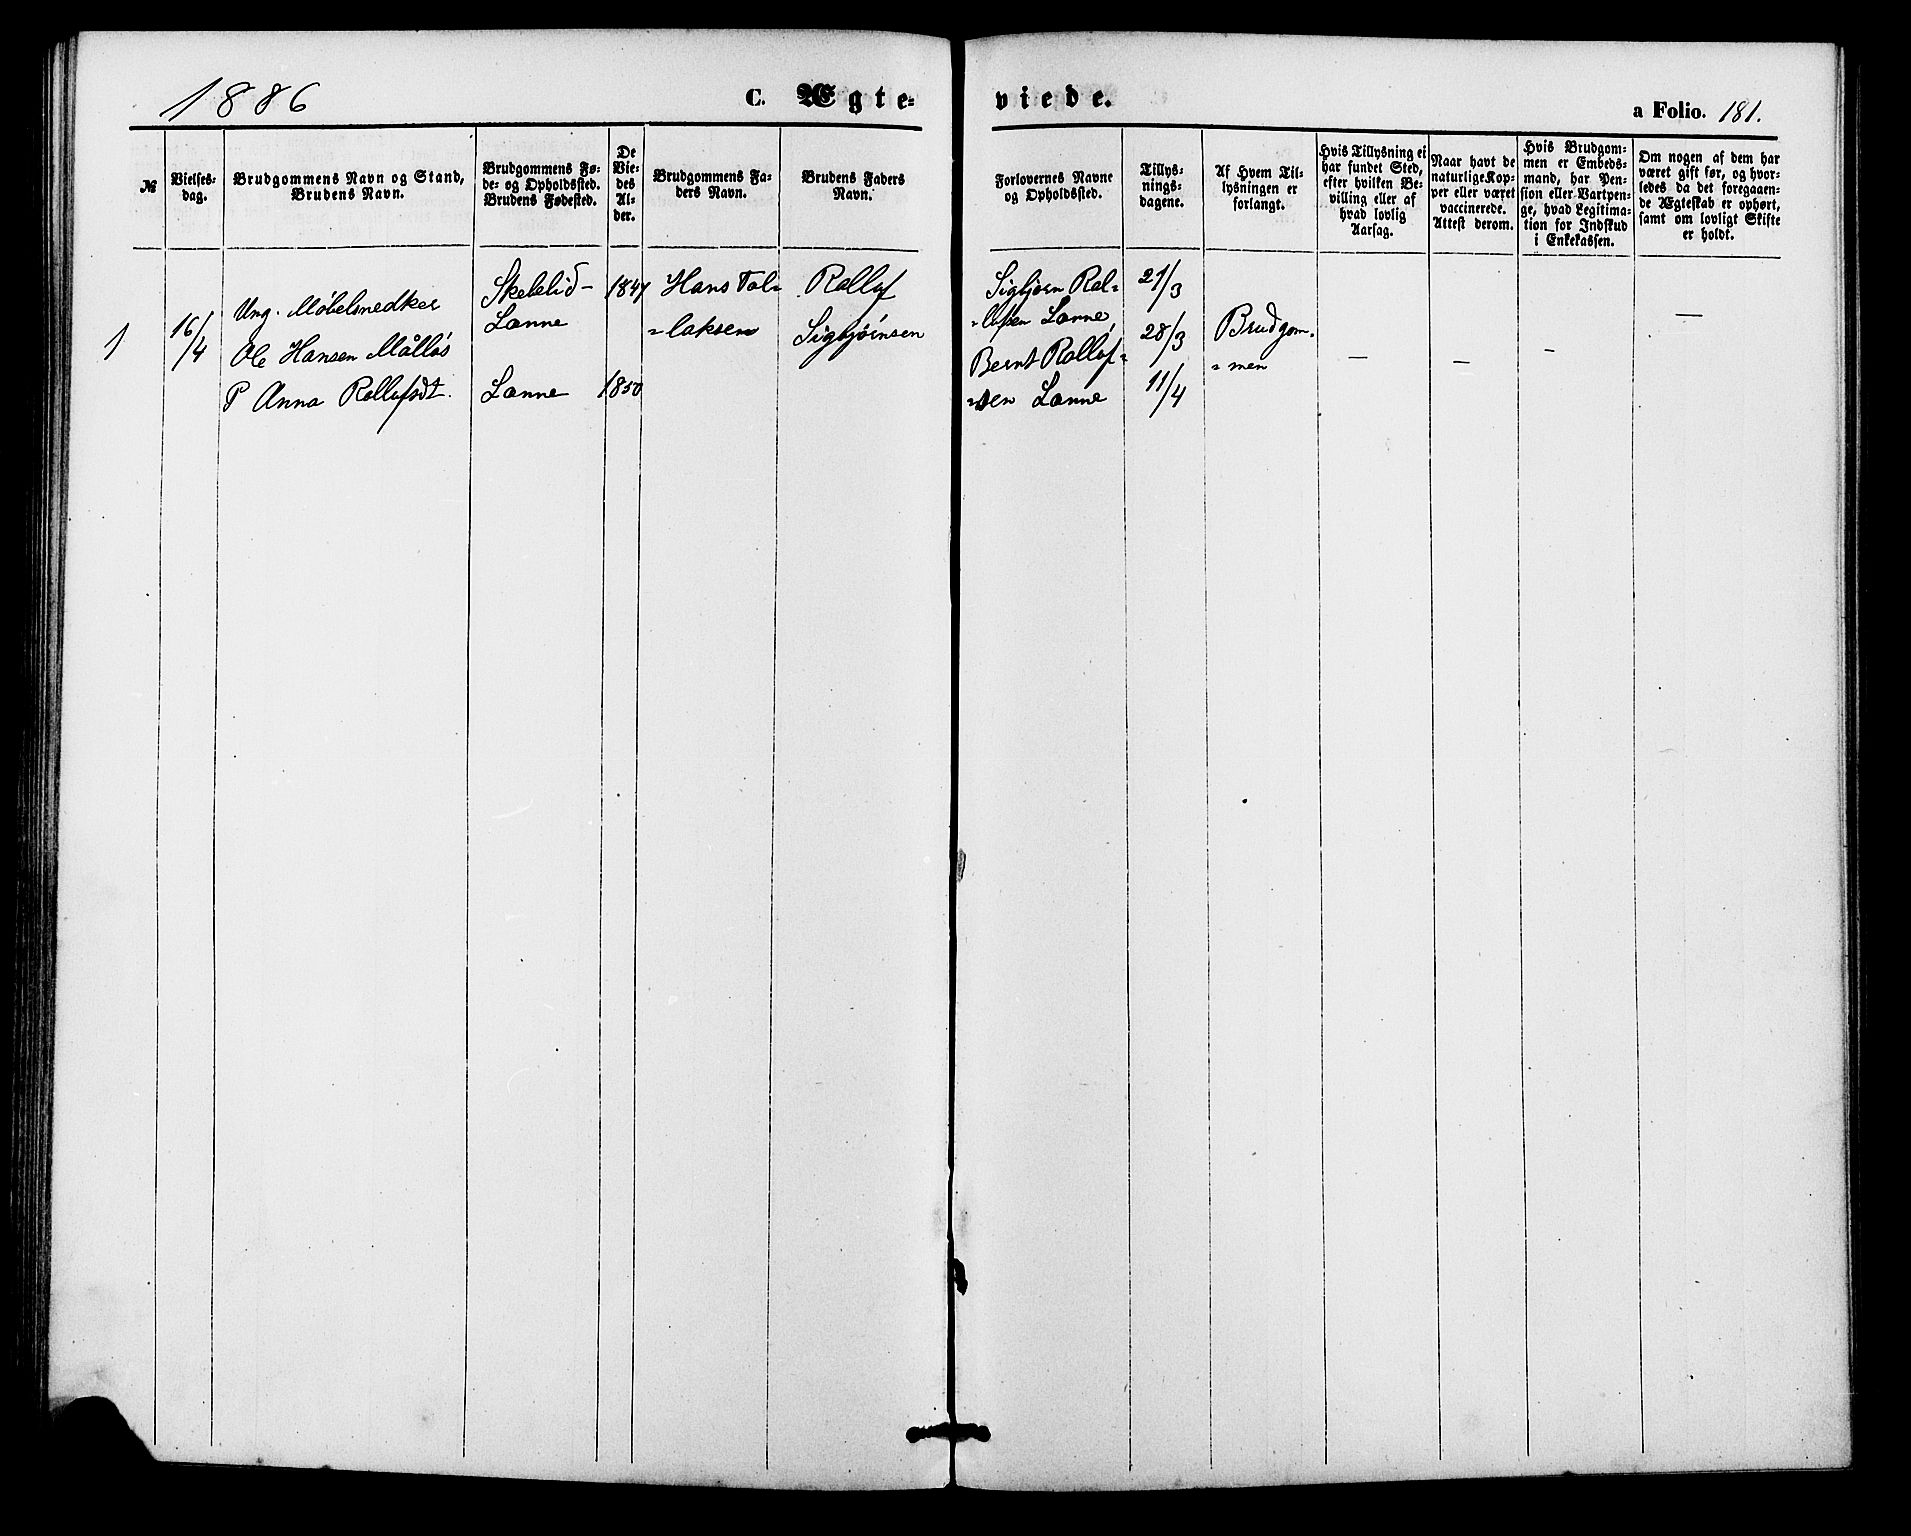 1886 C. Ægte-
viede. a Folio. 181.
№
Vielses-
dag.
Brudgommens Navn og Stand,
Brudens Navn.
Brudgommens Fø-
de- og Opholdssted.
Brudens Fødested.
De
Vie-
des
Al-
der.
Brudgommens Fa-
ders Navn.
Brudens Faders
Navn.
Forlovernes Navne
og Opholdssted.
Tillys-
nings-
dagene.
Af Hvem Til-
lysningen er
forlangt.
Hvis Tillysning ei
har fundet Sted,
efter hvilken Be-
villing eller af
hvad lovlig
Aarsag.
Naar havt de
naturlige Kop-
per eller været
vaccinerede.
Attest derom.
Hvis Brudgom-
men er Embeds-
mand, har Pen-
sion eller Vartpen-
ge, hvad Legitima-
tion for Indskud
i Enkekassen.
Om nogen af dem har
været gift før, og hvor-
ledes da det foregaaen-
de Ægteskab er ophørt,
samt om lovligt Skifte
er holdt.
1
16/4
Ung. Møbelsnedker
Ole Hansen Målløs
P Anna Rollufsdt.
Lønne
Lønne
1847
1850
Hans Tol-
=laksen
Rolluf
Sigbjørnsen
Sigbjørn Rol-
=lufsen Lønne
Bernt Rolluf=
=sen Lønne
21/3
28/3
11/4
Brudgom.
=men
—
—
—
—